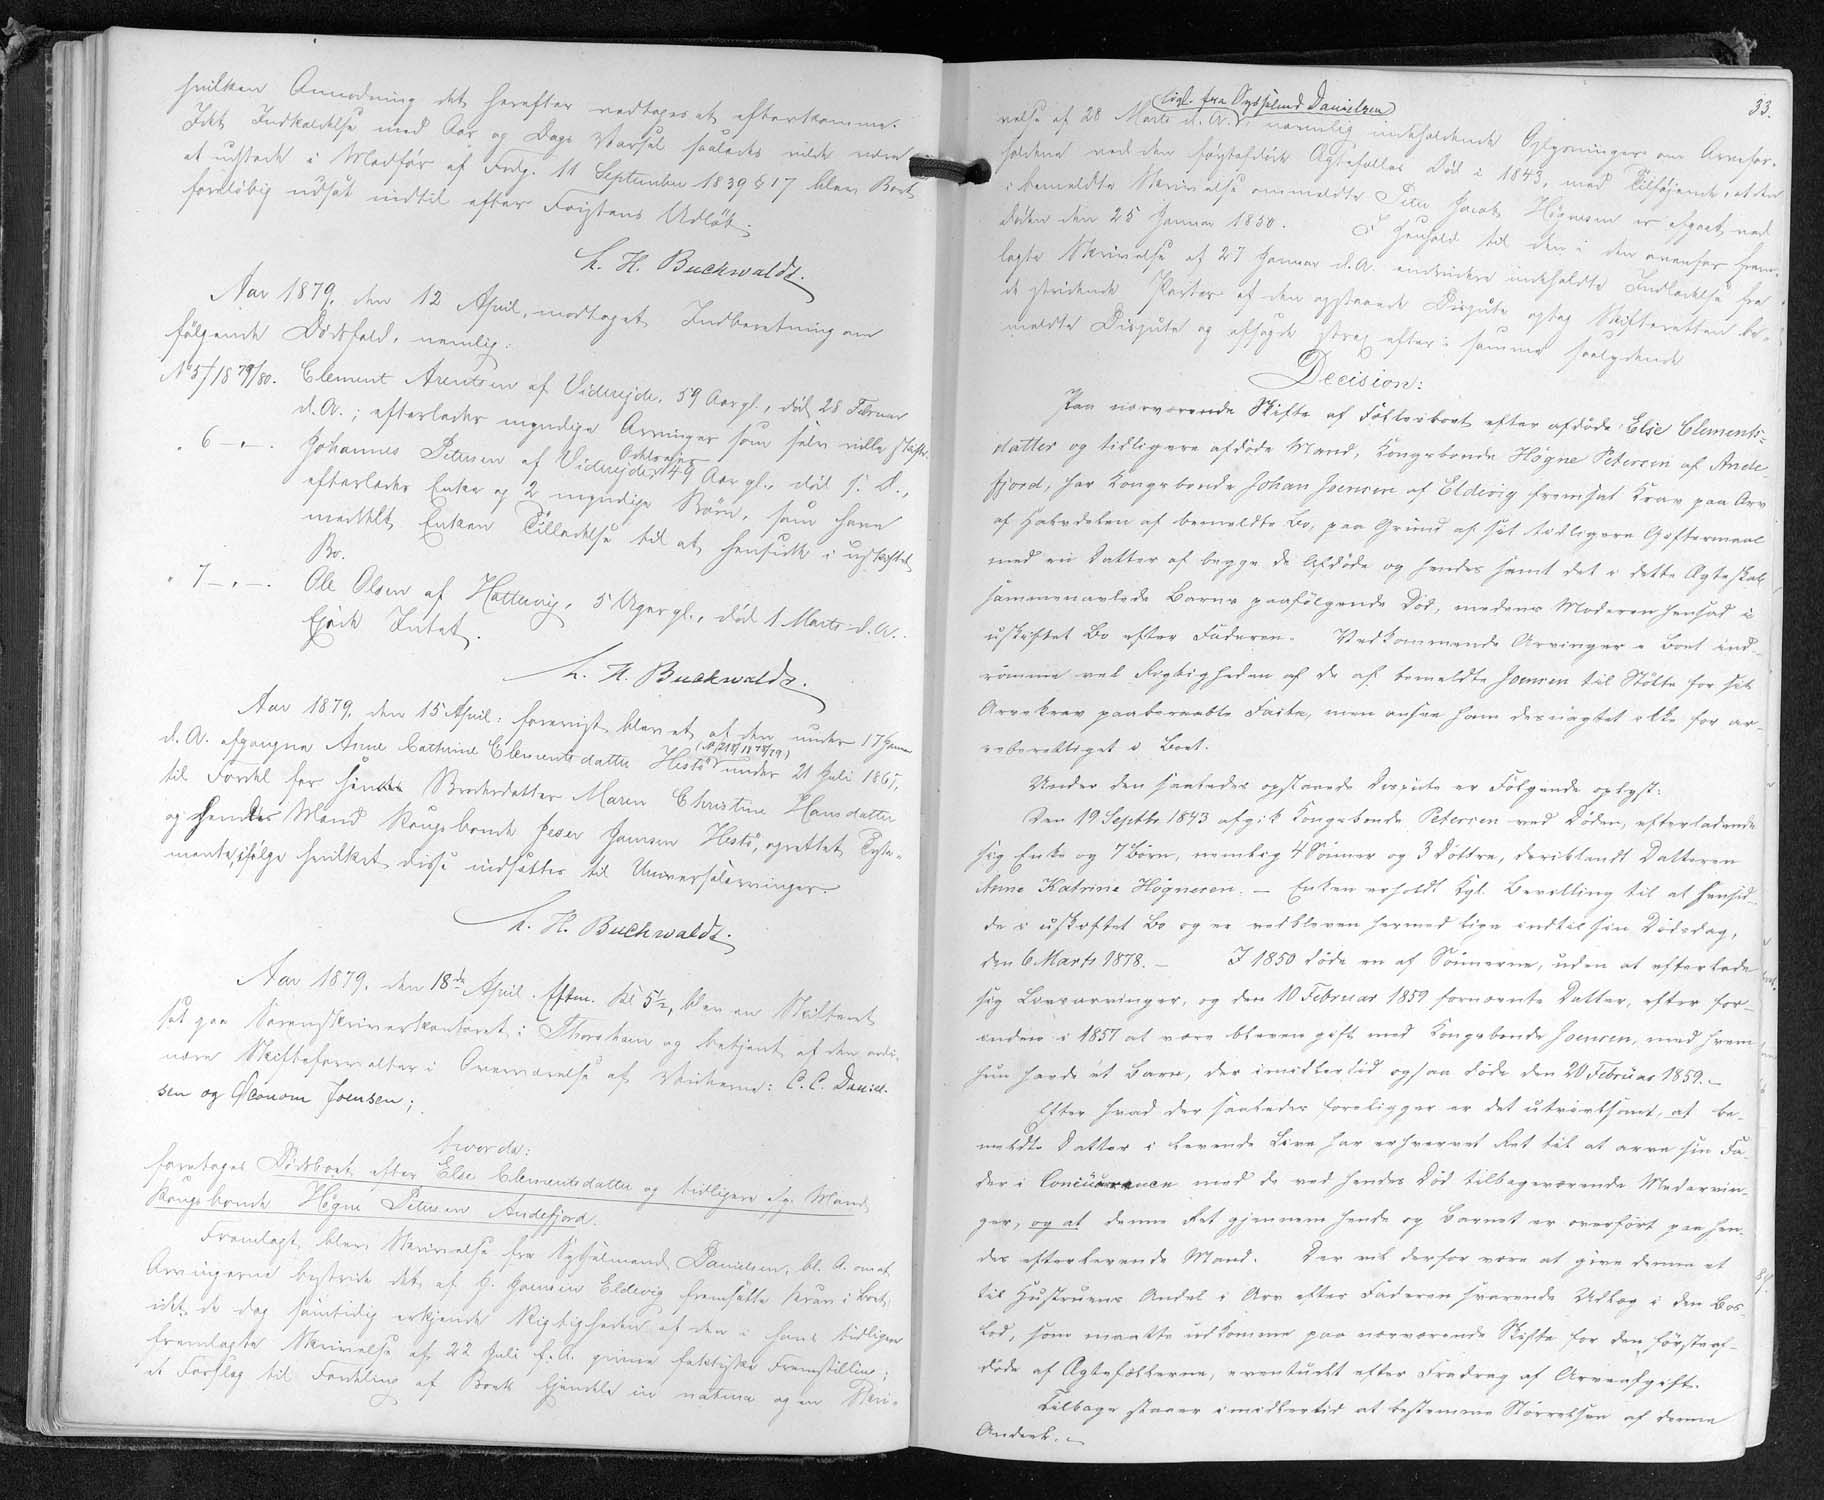 hvilken Anmodning det herefter vedtoges at efterkomme.
Idet Indkaldelse med Aar og Dags Varsel saaledes vilde være
at udstede i Medfør af Frdg. 11 September 1839 § 17 blev Boet
foreløbig udsat indtil efter Fristens Udløb.
L. H. Buchwaldt.
Aar 1879, den 12 April, modtoges Indberetning om
følgende Dødsfald, nemlig:
No 5/1879/80. Clement Arentsen af Videreide, 59 Aar gl., død 28 Februar
d.A.; efterlader myndige Arvinger som selv ville skifte.
" 6 —"—. Johannes Petersen af Videreide, 49 Aar gl., død s. D.,
efterlader Enke og 2 myndige Børn, som have
meddelt Enken Tilladelse til at hensidde i uskiftet
Bo.
" 7 —"—. Ole Olsen af Hattervig, 5 Uger gl., død 1 Marts d.A.
Ejede Intet.
L. H. Buchwaldt.
Aar 1879, den 15 April: forevist blev et af den under 17 Januar
d.A. afgangne Anne Cathrine Clementsdatter Hestø (No 217/1878/79) under 21 Juli 1865,
til Fordel for hendes Broderdatter Maren Christine Hansdatter
og hendes Mand Kongsbonde Joensen Hestø, oprettet Testa-
mente, ifølge hvilket disse indsættes til Universalarvinger.
L. H. Buchwaldt.
Aar 1879, den 18de April. Eftm. Kl 5½, blev en Skifteret
sat paa Sorenskriverkontoret i Thorshavn og betjent af den ordi-
nære Skifteforvalter i Overværelse af Vidnerne: C. C. Daniel-
sen og Oconom Joensen;
hvorda:
foretoges Dødsboet efter Else Clementsdatter og tidligere afg. Mand
Kongsbonde Høgne Petersen Andefjord.
Fremlagt blev Skrivelse fra Sysselmand Danielsen, bl. A. om at
Arvingerne bestride det af J. Joensen Eldevig fremsatte Krav i Boet,
idet de dog samtidig erkjende Rigtigheden af den i hans tidligere
fremlagte Skrivelse af 22 Juli f.A. givne faktiske Fremstilling;
et Forslag til Fordeling af Boets Ejendele in natura og en Skri-
33.
velse af 28 Marts d.A. (ligl. fra Sysselmd Danielsen) nemlig indeholdende Oplysninger om Arvefor-
holdene ved den førstafdøde Ægtefælles Død i 1843, med Tilføjende, at den
i bemeldte Skrivelse ommeldte Peter Jacob Høgnesen er afgaaet ved
Døden den 25 Januar 1850. I Henhold til den i den ovenfor frem-
lagte Skrivelse af 27 Januar d.A. endvidere indeholdte Indladelse fra
de stridende Parter af den opstaaede Dispute optog Skifteretten be-
meldte Dispute og afsagde strax efter i samme saalydende
Decision:
Paa nærværende Skifte af Fællesboet efter afdøde Else Clements-
datter og tidligere afdøde Mand, Kongsbonde Høgne Petersen af Ande
fjord, har Kongsbonde Johan Joensen af Eldevig fremsat Krav paa Arv
af Halvdelen af bemeldte Bo, paa Grund af sit tidligere Giftermaal
med en Datter af begge de Afdøde og hendes samt det i dette Ægteskab
sammenavlede Barns paafølgende Død, medens Moderen hensad i
uskiftet Bo efter Faderen. Vedkommende Arvinger i Boet ind-
rømme vel Rigtigheden af de af bemeldte Joensen til Støtte for sit
Arvekrav paaberaabte Facta, men ansee ham desuagtet ikke for ar-
veberettiget i Boet.
Under den saaledes opstaaede Dispute er Følgende oplyst:
Den 19 Septbr. 1843 afgik Kongsbonde Petersen ved Døden, efterladende
sig Enke og 7 Børn, nemlig 4 Sønner og 3 Døttre, deriblandt Datteren
Anne Katrine Høgnesen. — Enken erholdt Kgl. Bevilling til at hensid-
de i uskiftet Bo og er vedbleven hermed lige indtil sin Dødsdag,
den 6 Marts 1878. — I 1850 døde en af Sønnerne, uden at efterlade
sig Livsarvinger, og den 10 Februar 1859 fornævnte Datter, efter for-
inden i 1857 at være bleven gift med Kongsbonde Joensen, med hvem
hun havde et Barn, der imidlertid ogsaa døde den 20 Februar 1859. —
Efter hvad der saaledes foreligger er det utvivlsomt, at be-
meldte Datter i levende Live har erhvervet Ret til at arve sin Fa-
der i Concurrence med de ved hendes Død tilbageværende Medarvin-
ger, og at denne Ret gjennem hende og Barnet er overført paa hen-
des efterlevende Mand. Der vil derfor være at give denne et
til Hustruens Andel i Arv efter Faderen svarende Udlæg i den Bos
Lod, som maatte udkomme paa nærværende Skifte for den førstaf-
døde af Ægtefællerne, eventuelt efter Fradrag af Arveafgift.
Tilbage staaer imidlertid at bestemme Størrelsen af denne
Andel. —